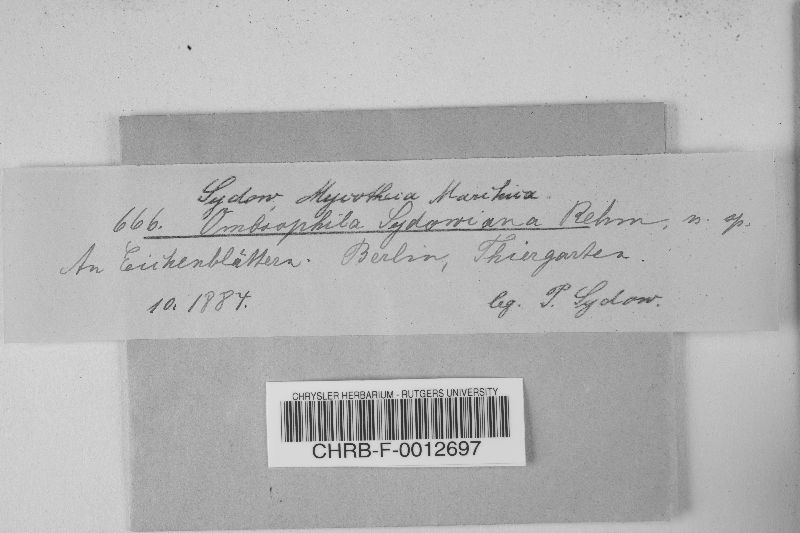 Sydow, Mycotheca Marchica.
666. Ombrophila Sydowiana Rehm, n. sp.
An Eichenblättern. Berlin, Thiergarten.
10. 1884. leg. P. Sydow.
CHRYSLER HERBARIUM - RUTGERS UNIVERSITY
CHRB-F-0012697